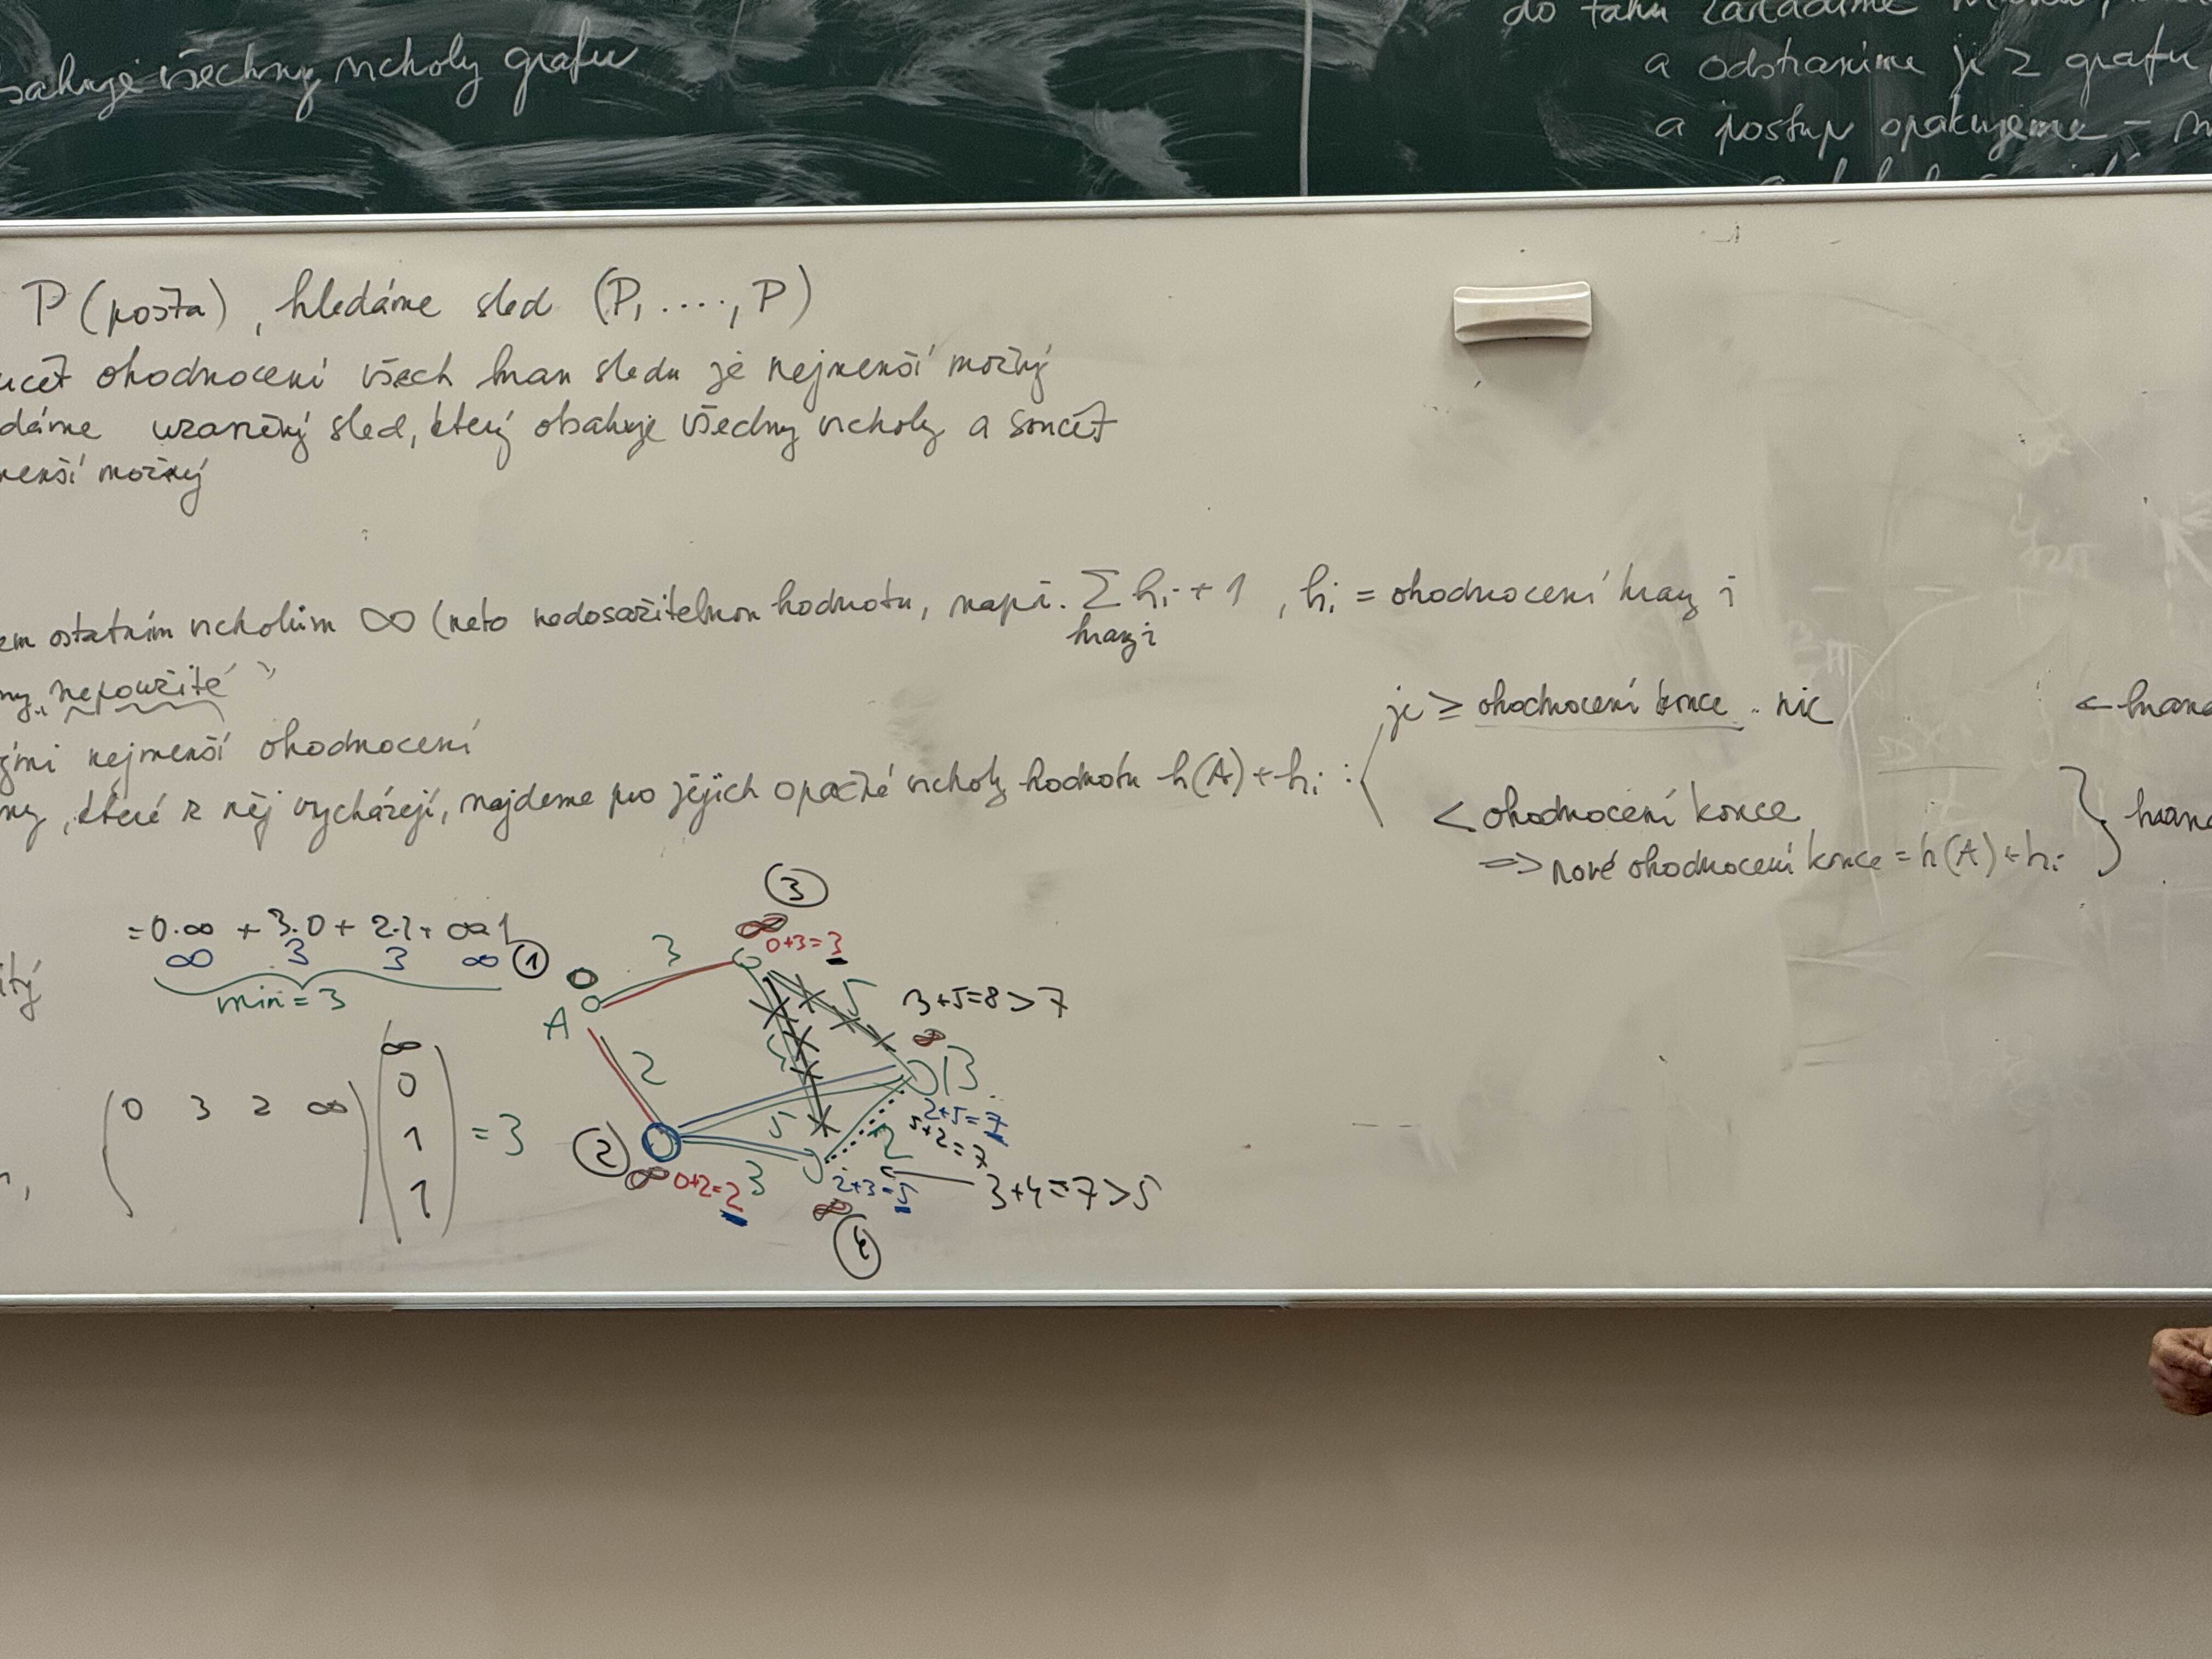 sahuje všechny vrcholy grafu
do tahu zařadíme
a odstraníme ji z grafu,
a postup opakujeme -
P (pošta), hledáme sled (P, ...., P)
učet ohodnocení všech hran sledu je nejmenší možný
dáme uzavřený sled, který obsahuje všechny vrcholy a součet
menší možný
em ostatním vrcholům ∞ (nebo nedosažitelnou hodnotu, např. ∑ hᵢ + 1 , hᵢ = ohodnocení hrany i
hrany i
ny „nepoužité"
nejmenší ohodnocení
ny, které z něj vycházejí, najdeme pro jejich opačné vrcholy hodnotu h(A)+hᵢ :
je ≥ ohodnocení konce .. nic
< ohodnocení konce
⇒ nové ohodnocení konce = h(A)+hᵢ
← hrana
} hrana
= 0.∞ + 3.0 + 2.1 + ∞.1
∞ 3 3 ∞
min = 3
itý
(0 3 2 ∞)
∞
0
1
1
= 3
①
0
A
3
③
∞
0+3=3
5
3+5=8>7
∞
B
2+5=7
5+2=7
2
②
∞
0+2=2
3
5
2
2+3=5
3+4=7>5
∞
④